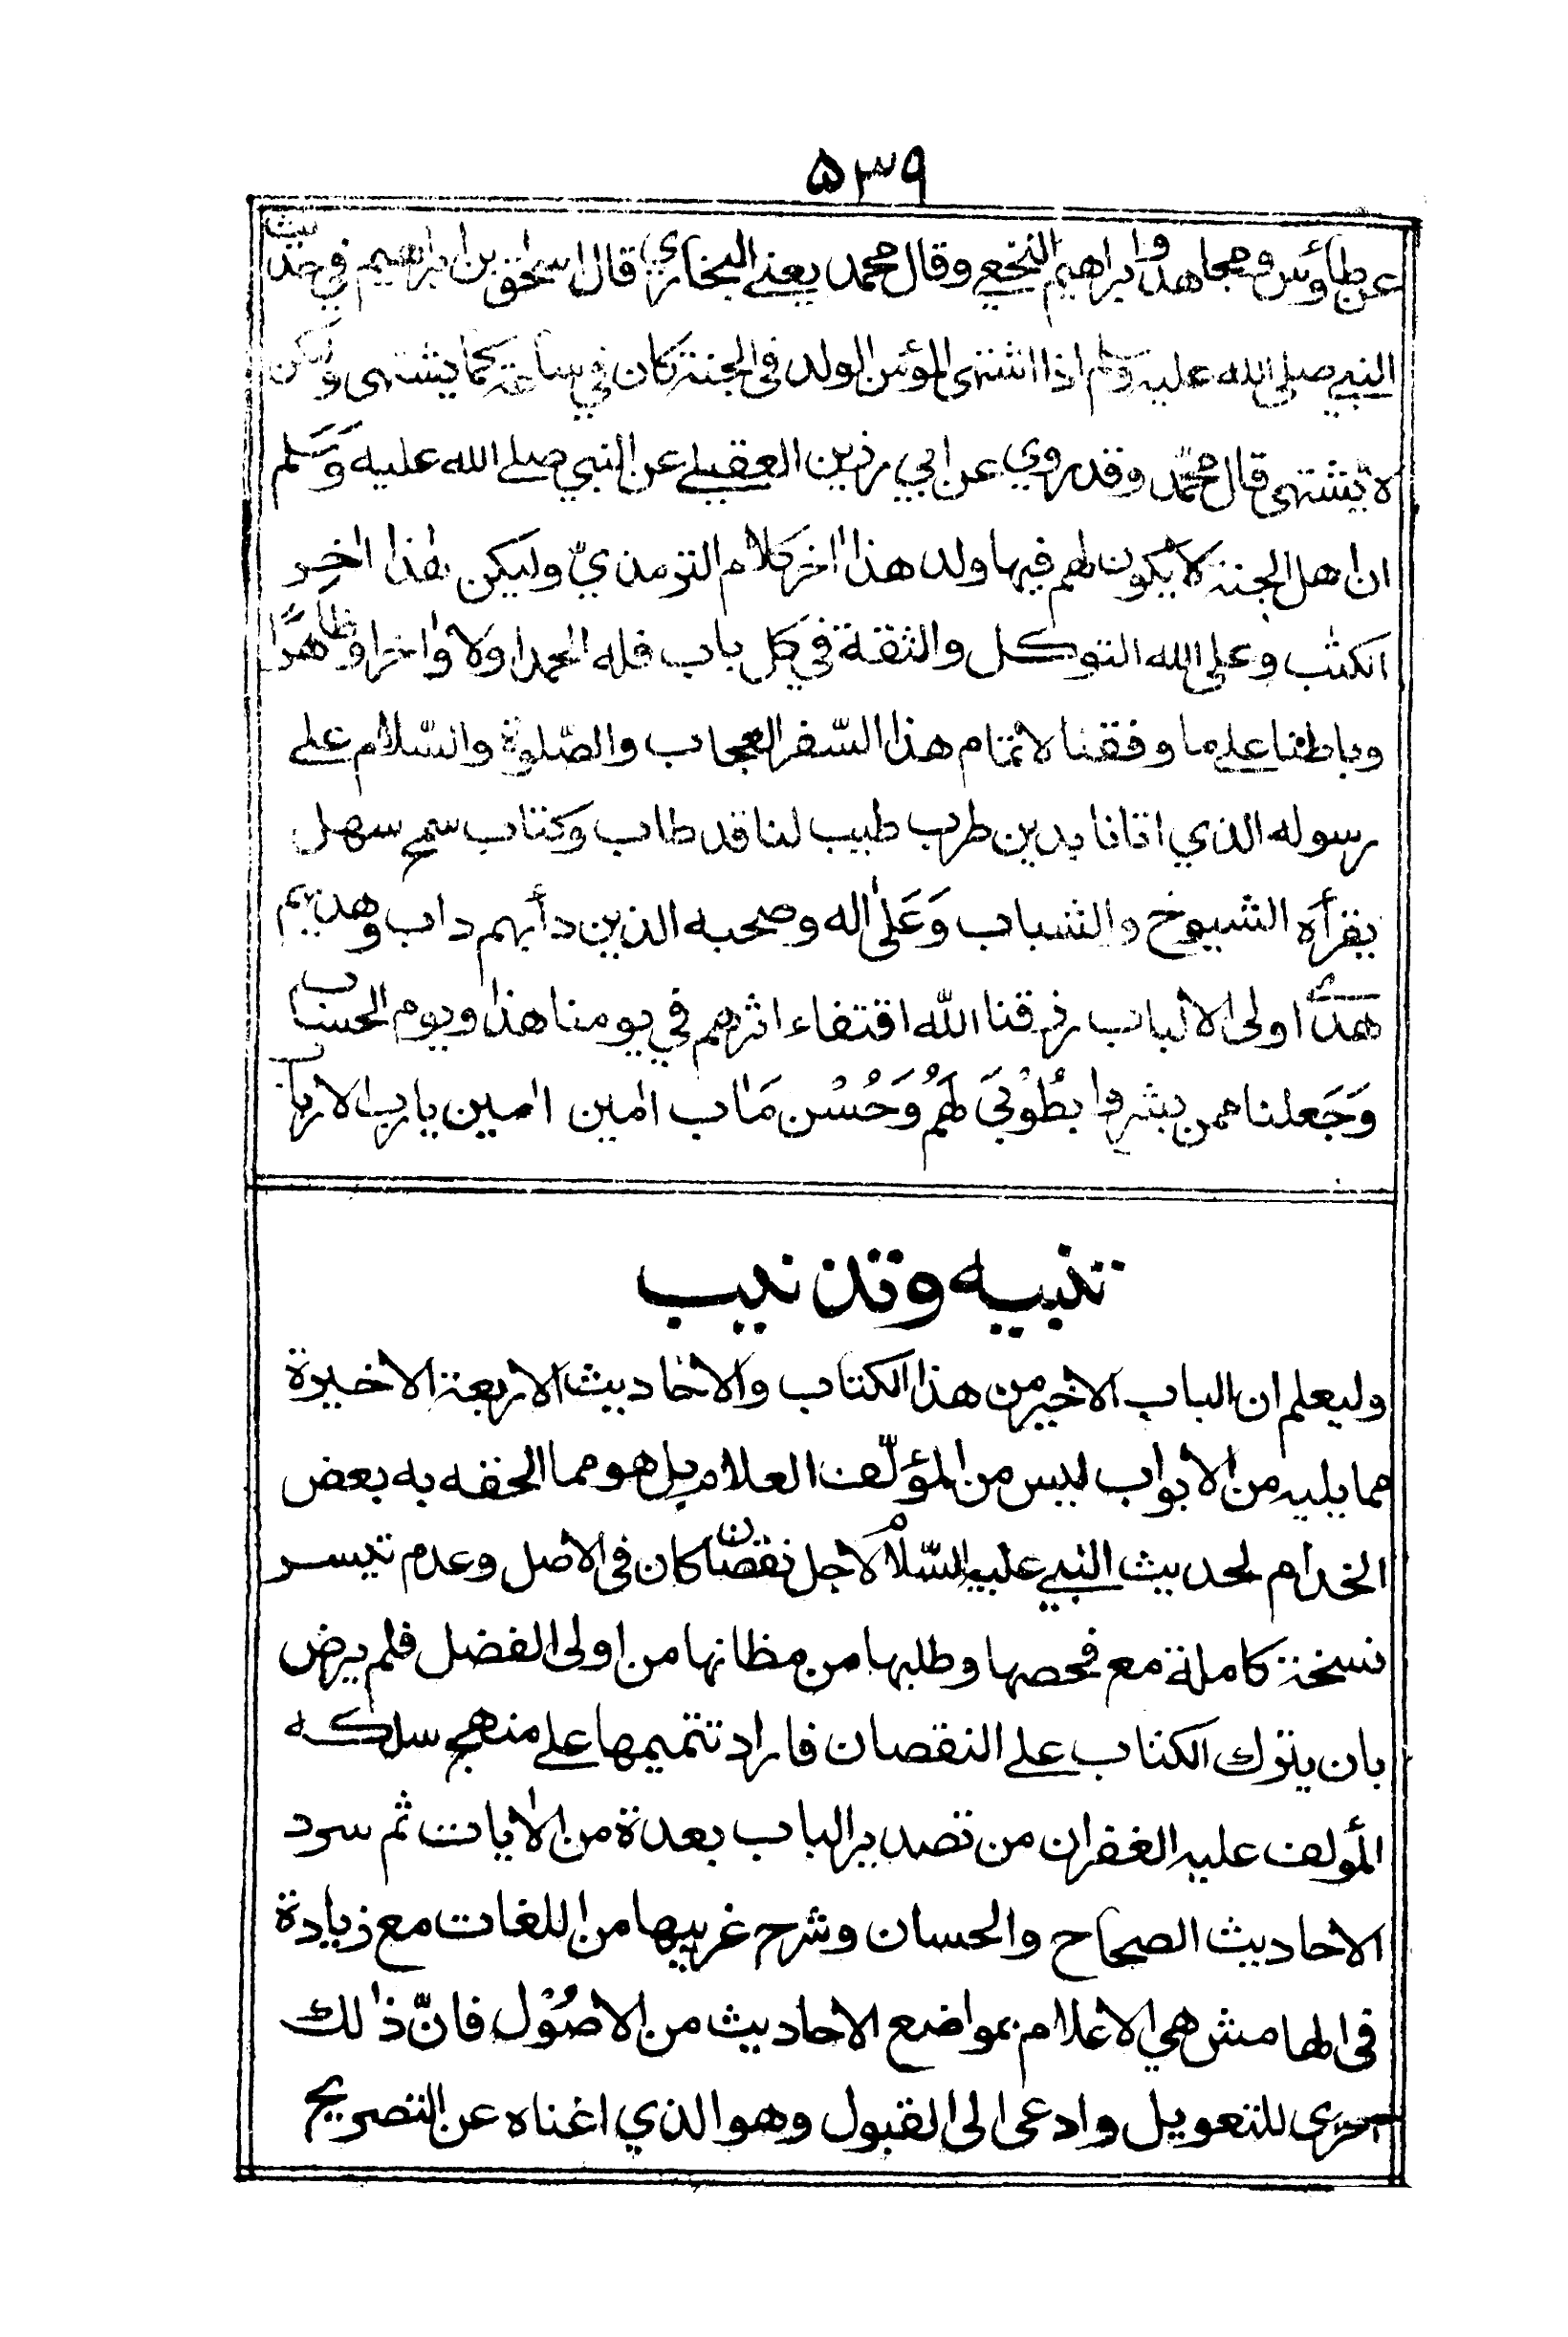 ۵۳۹
عن طاؤس ومجاهد وابراهيم النخعي وقال محمد يعنے البخاري قال اسحٰق بن ابراهيم في حديث
النبي صلى الله عليه وسلم اذا اشتهى المؤمن الولد فى الجنة كان في ساعة كما يشتهى ولكن
لا يشتهى قال محمّد وقد روي عن ابي رزين العقيلے عن النبي صلے الله عليه وَسَلم
ان اهل الجنة لا يكون لهم فيها ولد هذا اٰخر كلام الترمذيّ وليكن هٰذا اٰخر
الكتٰب وعلى الله التوكل والثقة في كل باب فله الحمد اولا واٰخرا وظاهرًا
وباطنا علے ما وفقنا لاتمام هذا السّفر العجاب والصّلوة والسّلام علے
رسوله الذي اتانا بدين طرب طبيب لنا قد طاب وكتاب سمح سهل
يقرأه الشيوخ والشباب وَعَلٰى اله وصحبه الذين دأبهم داب وهديهم
هدى اولى الالباب رزقنا الله اقتفاء اثرهم في يومنا هذا ويوم الحساب
وَجَعلنا ممن بشروا بطُوْبىَ لَهُمْ وَحُسْن مَاٰب اٰمين اٰمين يا رب الارباب
تنبيه وتذنيب
وليعلم ان الباب الاخير من هذا الكتاب والاحاديث الاربعة الاخيرة
مما يليه من الابواب ليس من المؤلّف العلام بل هو مما الحقه به بعض
الخدام لحديث النبي عليه السّلام لاجل نقصان كان فى الاصل وعدم تيسر
نسخة كاملة مع فحصها وطلبها من مظانها من اولى الفضل فلم يرض
بان يترك الكتاب علے النقصان فاراد تتميمها علے منهج سلكه
المؤلف عليه الغفران من تصدير الباب بعدة من الاٰيات ثم سرد
الاحاديث الصحاح والحسان وشرح غريبها من اللغات مع زيادة
فى الهامش هي الاعلام بمواضع الاحاديث من الاصُوْل فانّ ذٰلك
احرى للتعويل وادعى الى القبول وهو الذي اغناه عن التصريح